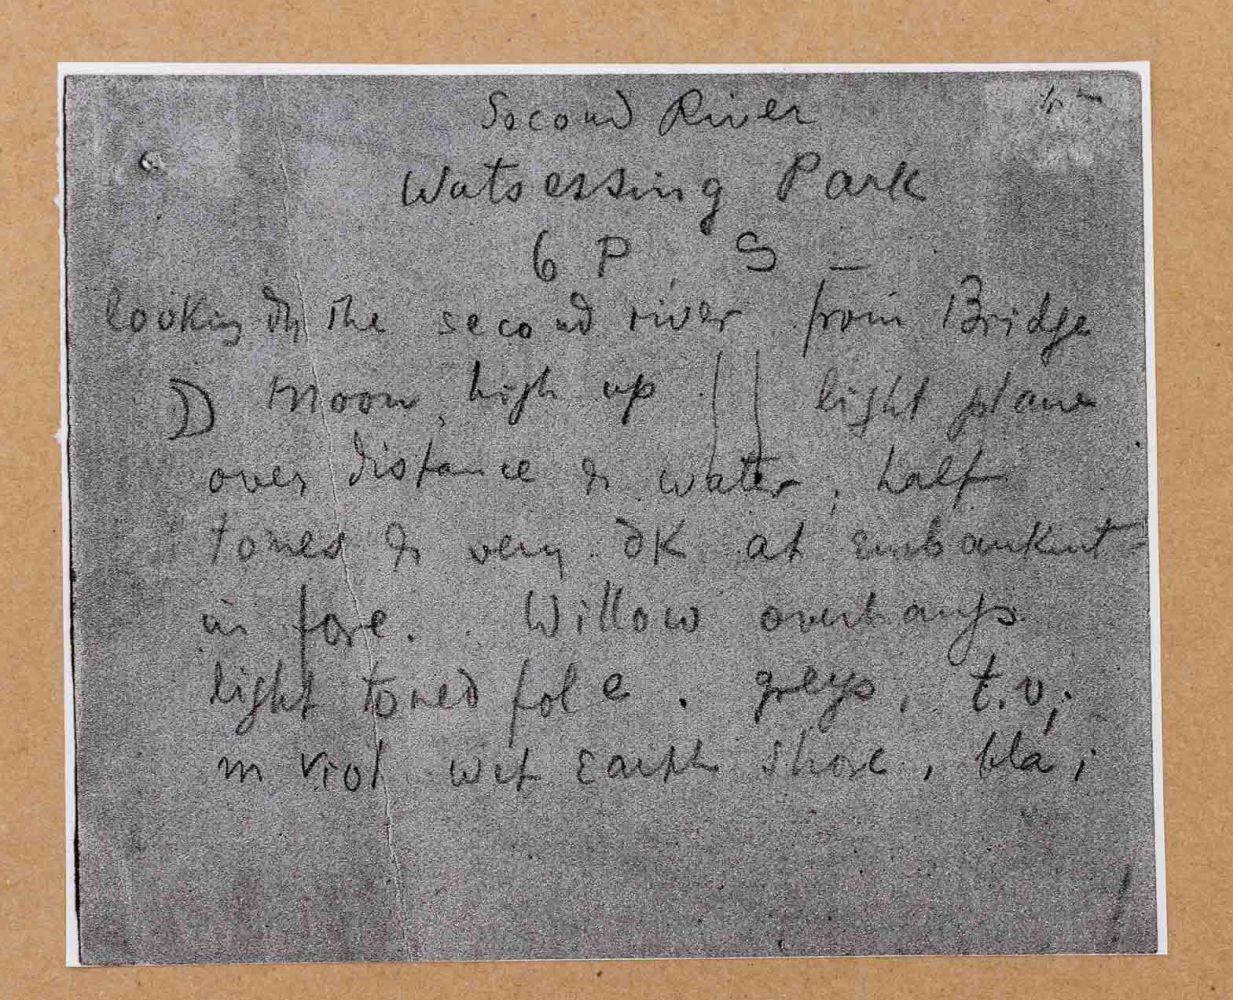 Second River
Watsessing Park
6 P. S –
looking the second river from Bridge
Moon, high up light plane
over distance & water, half
tones & very dK at embankmt
in fore. Willow overhangs
light toned fol e. greys, t.v;
in viol wet Earth shore,